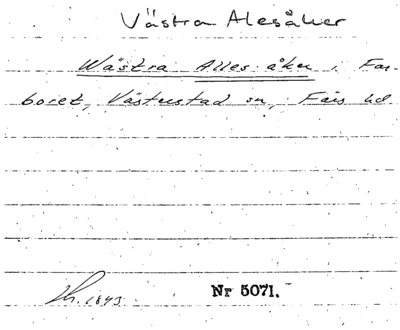 Västra Alesåker
Wästra Alles åker i Far-
boret, Västerstad sn, Färs hd
1843 Nr 5071.